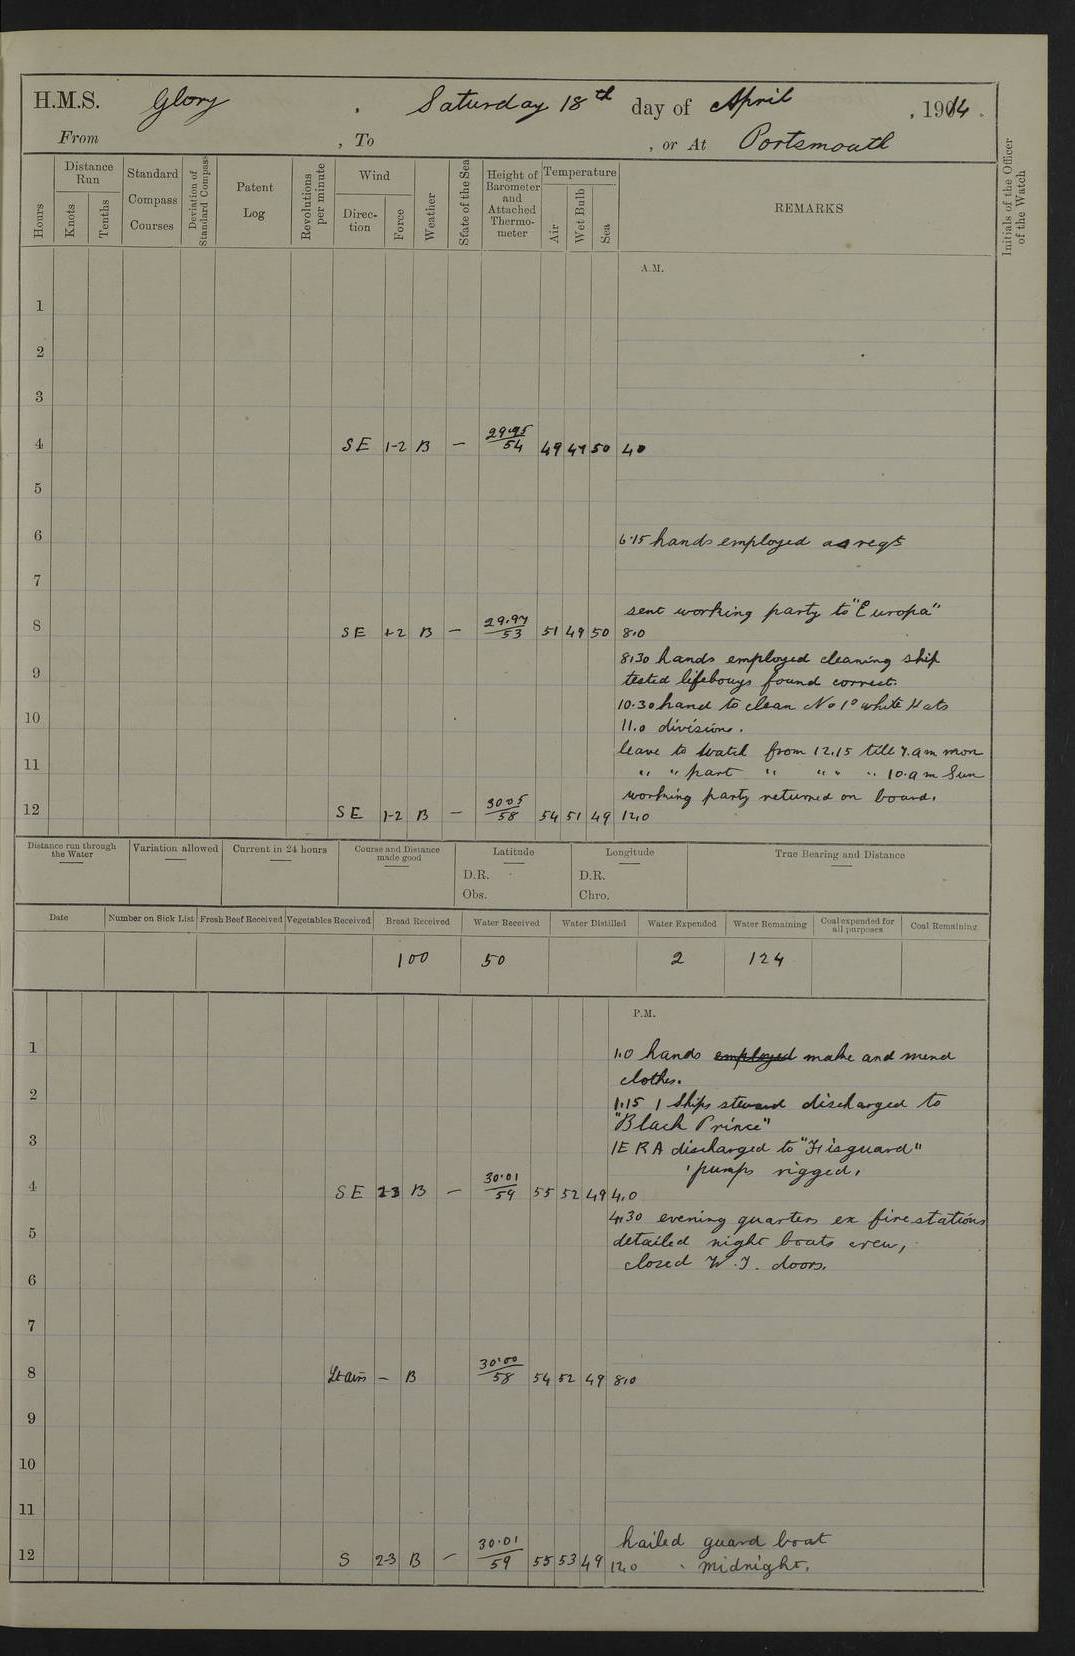 H.M.S. Glory , Saturday 18th day of April , 1914.
From , To , or At Portsmouth
Hours
Distance Run
Knots
Tenths
Standard Compass Courses
Deviation of Standard Compass
Patent Log
Revolutions per minute
Wind
Direc-tion
Force
Weather
State of the Sea
Height of Barometer and Attached Thermo-meter
Temperature
Air
Wet Bulb
Sea
REMARKS
Initials of the Officer of the Watch
A.M.
1
2
3
4 SE 1-2 B — 29.95/54 49 47 50 4.0
5
6 6.15 hands employed as reqd
7
sent working party to "Europa"
8 SE 1-2 B — 29.97/53 51 49 50 8.0
8.30 hands employed cleaning ship
9 tested lifebouys found correct.
10.30 hand to clean No 1s white Hats
10 11.0 divisions.
leave to watch from 12.15 till 7.am mon
11 " " part " " " " 10.am Sun
working party returned on board.
12 SE 1-2 B — 30.05/58 54 51 49 12.0
Distance run through the Water
Variation allowed
Current in 24 hours
Course and Distance made good
Latitude
D.R.
Obs.
Longitude
D.R.
Chro.
True Bearing and Distance
Date
Number on Sick List
Fresh Beef Received
Vegetables Received
Bread Received
Water Received
Water Distilled
Water Expended
Water Remaining
Coal expended for all purposes
Coal Remaining
100 50 2 124
P.M.
1 1.0 hands employed make and mend
clothes.
2 1.15 1 Ships steward discharged to
"Black Prince"
3 1 E R A discharged to "Fisguard"
pumps rigged.
4 SE 2-3 B — 30.01/59 55 52 49 4.0
4.30 evening quarters ex fire stations
5 detailed night boats crew,
closed W.T. doors.
6
7
8 Lt airs — B 30.00/58 54 52 49 8.0
9
10
11
hailed guard boat
12 S 2-3 B — 30.01/59 55 53 49 12.0 midnight.